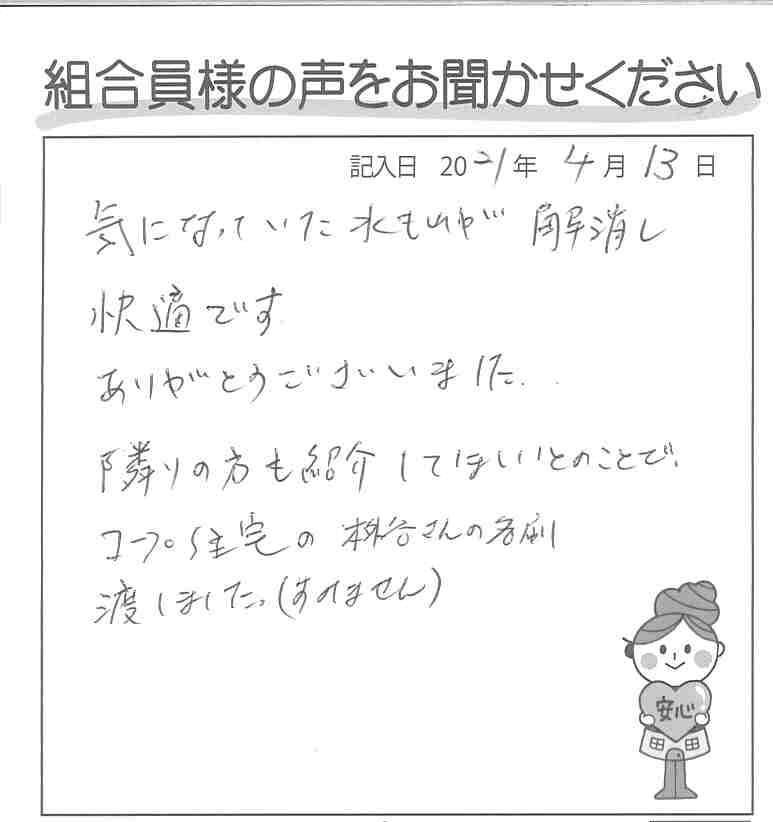 組合員様の声をお聞かせください
記入日 2021年 4月 13日
気になっていた水もれが 解消し
快適です
ありがとうございました.
隣りの方も紹介してほしいとのことで.
コープ住宅の 桝谷さんの名刺
渡しました。(すみません)
安心